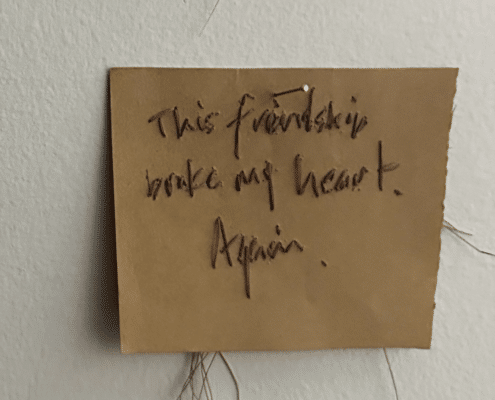 This friendship
broke my heart.
Again.